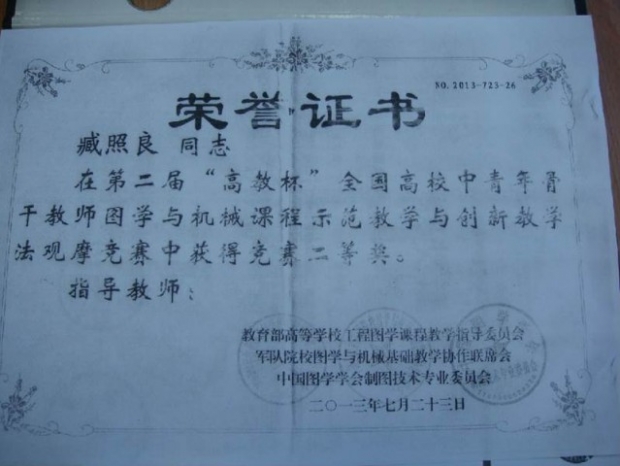 NO.2013-723-26
荣誉证书
臧照良 同志
在第二届“高教杯”全国高校中青年骨
干教师图学与机械课程示范教学与创新教学
法观摩竞赛中获得竞赛二等奖。
指导教师：
教育部高等学校工程图学课程教学指导委员会
军队院校图学与机械基础教学协作联席会
中国图学学会制图技术专业委员会
二〇一三年七月二十三日